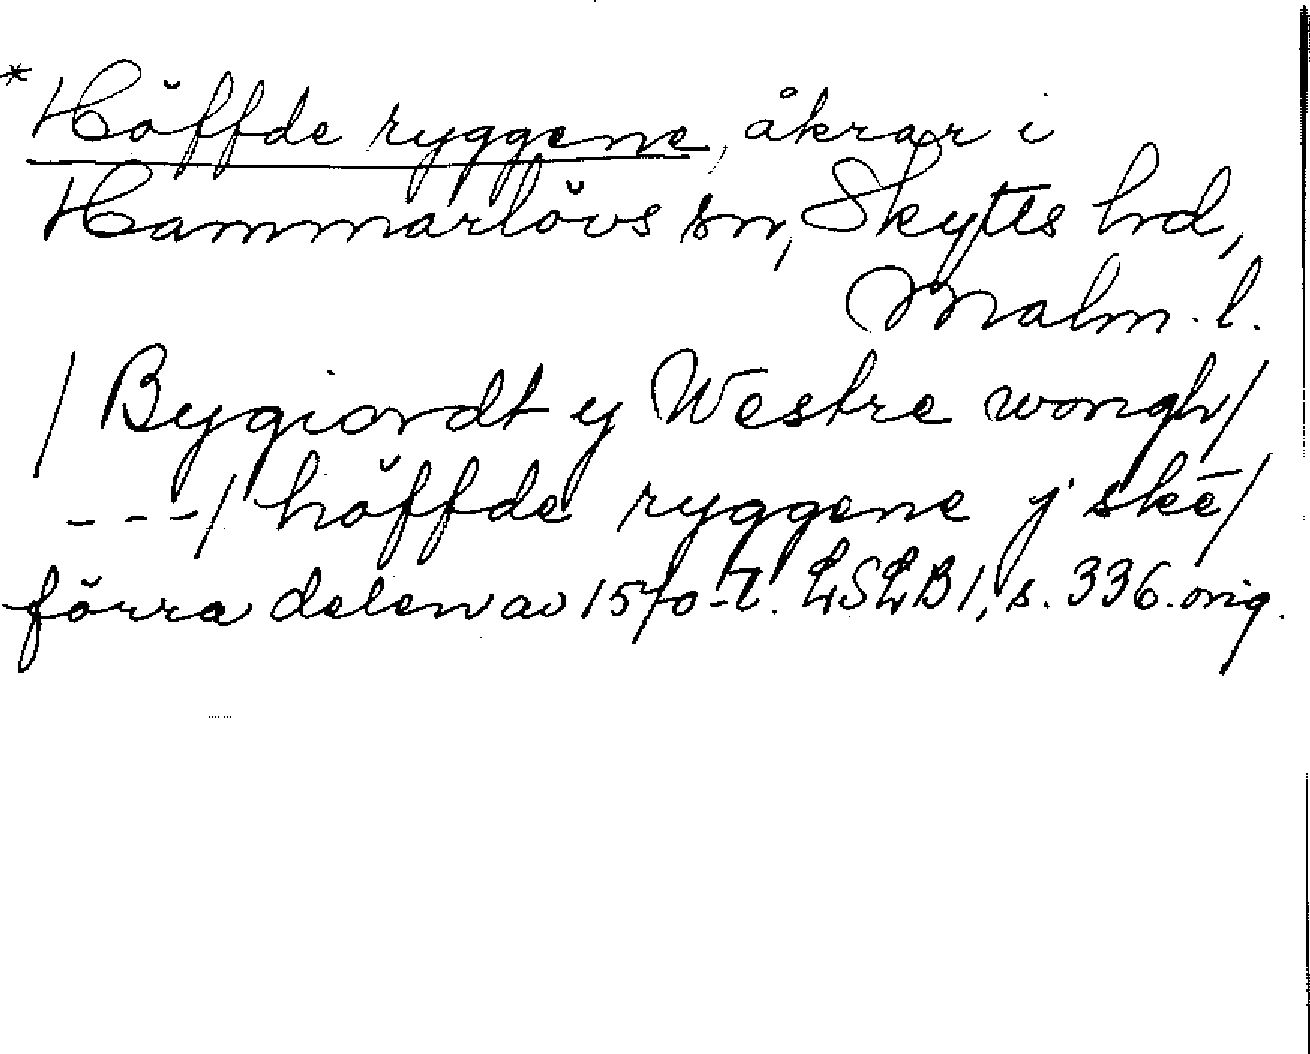 * Höffde ryggene, åkrar i
Hammarlövs sn, Skytts hd,
Malm. l.
/ Bygiordt y Westre wongh/
- - -/ höffde ryggene j skē/
förra delen av 1570-t. LSLB1, s. 336. orig.